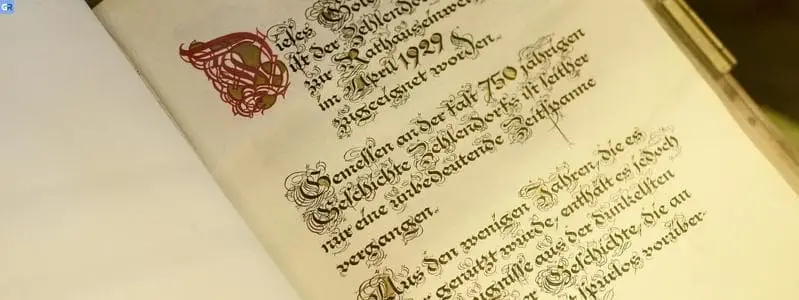 GR
Dieses Gold
ist der Zehlendor
zur Rathauseinwei
im April 1929
zugeeignet worden.
Gemessen an der fast 750 jährigen
Geschichte Zehlendorfs ist seither
nur eine unbedeutende Zeitspanne
vergangen.
Aus den wenigen Jahren, die es
genutzt wurde, enthält es jedoch
ignisse aus der dunkelsten
der Geschichte, die an
spurlos vorüber-